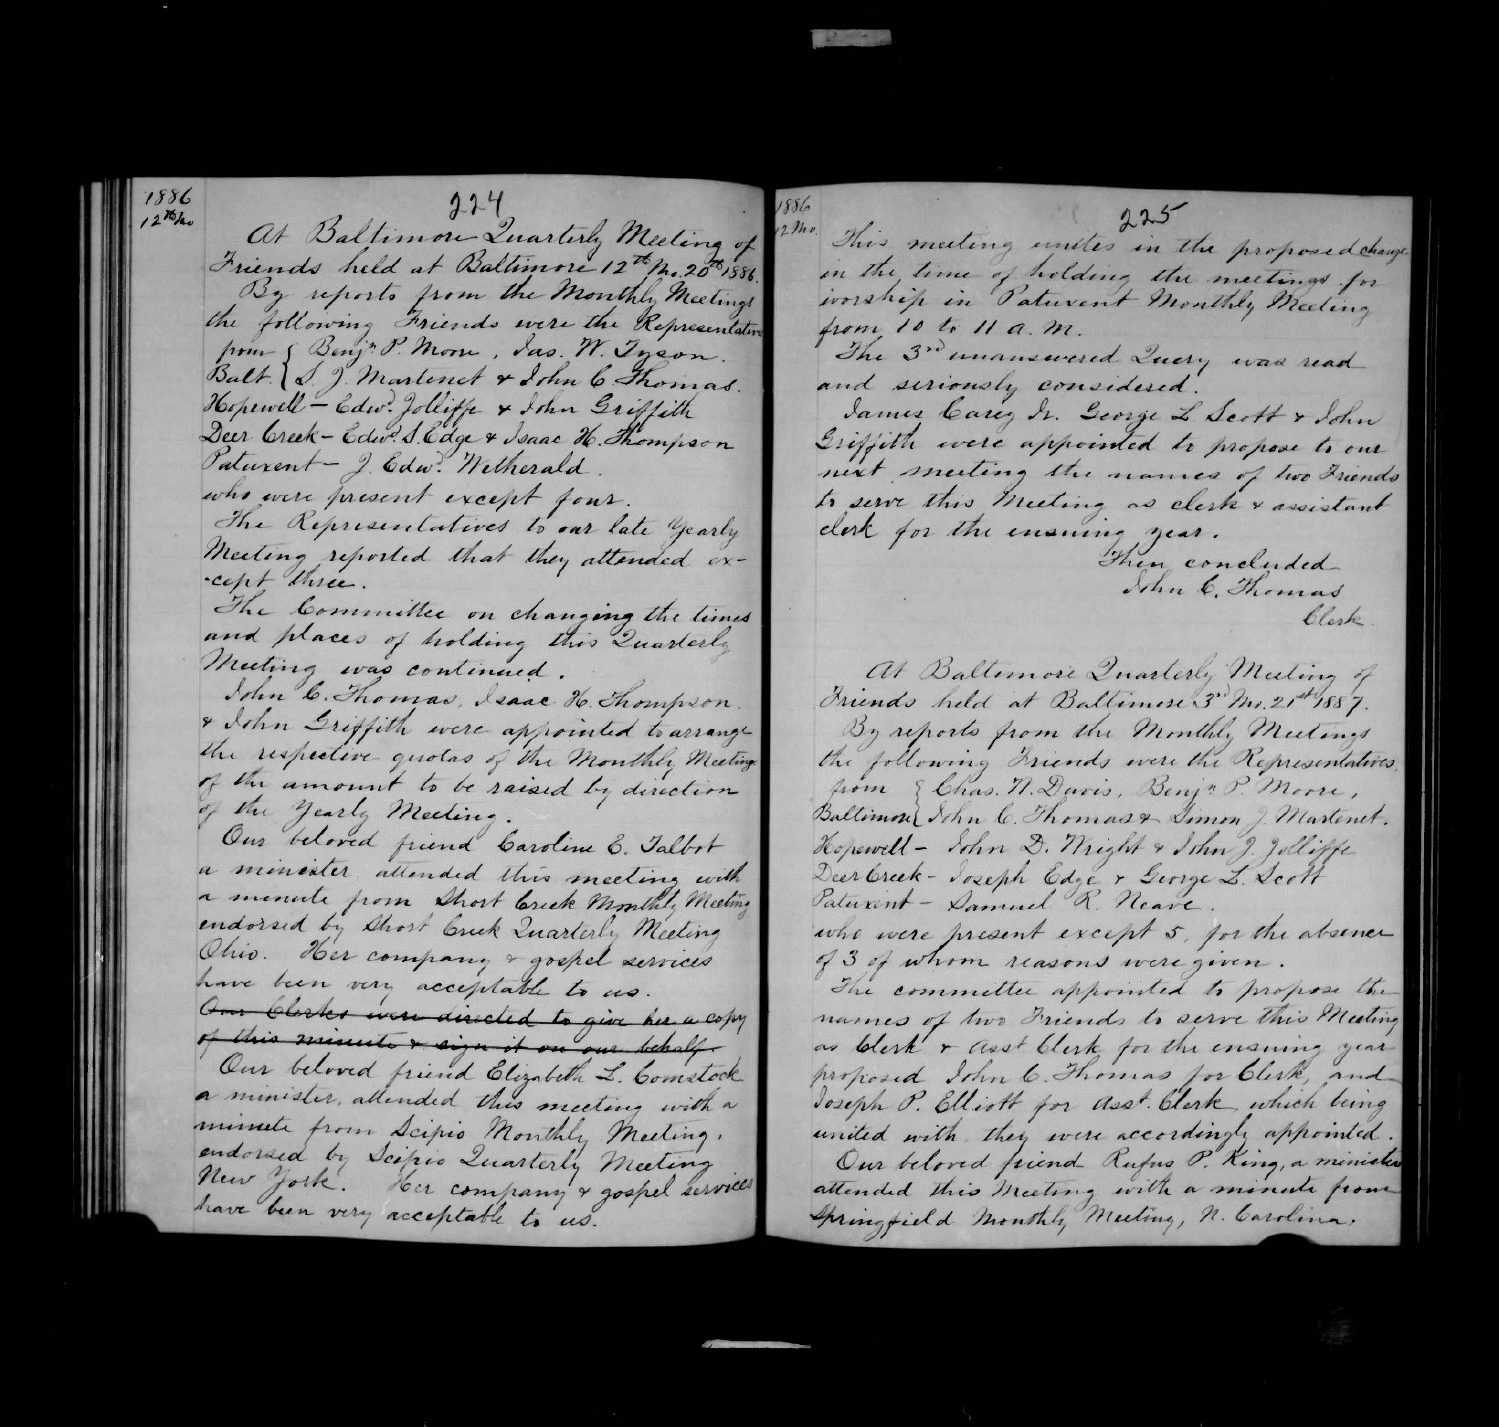 1886
12th Mo
224
At Baltimore Quarterly Meeting of
Friends held at Baltimore 12th Mo. 20th 1886.
By reports from the Monthly Meetings
the following Friends were the Representatives
from { Benjn P. Moore, Jas. W. Tyson.
Balt. { S. J. Martenet & John C Thomas.
Hopewell – Edwd. Jolliffe & John Griffith
Deer Creek – Edwd. S. Edge & Isaac H. Thompson
Patuxent – J. Edwd. Wetherald.
who were present except four.
The Representatives to our late Yearly
Meeting reported that they attended ex-
-cept three.
The Committee on changing the times
and places of holding this Quarterly
Meeting was continued.
John C. Thomas, Isaac H. Thompson
& John Griffith were appointed to arrange
the respective quotas of the Monthly Meetings
of the amount to be raised by direction
of the Yearly Meeting.
Our beloved friend Caroline E. Talbot
a minister attended this meeting with
a minute from Short Creek Monthly Meeting
endorsed by Short Creek Quarterly Meeting
Ohio. Her company & gospel services
have been very acceptable to us.
Our Clerks were directed to give her a copy
of this minute & sign it on our behalf.
Our beloved friend Elizabeth L. Comstock
a minister, attended this meeting with a
minute from Scipio Monthly Meeting,
endorsed by Scipio Quarterly Meeting
New York. Her company & gospel services
have been very acceptable to us.
1886
12 Mo.
225
This meeting unites in the proposed change
in the time of holding the meetings for
worship in Patuxent Monthly Meeting
from 10 to 11 a.m.
The 3rd unanswered Query was read
and seriously considered.
James Carey Jr. George L Scott & John
Griffith were appointed to propose to our
next meeting the names of two Friends
to serve this Meeting as clerk & assistant
clerk for the ensuing year.
Then concluded
John C. Thomas
Clerk.
At Baltimore Quarterly Meeting of
Friends held at Baltimore 3rd Mo. 21st 1887.
By reports from the Monthly Meetings
the following Friends were the Representatives,
from { Chas. N. Davis, Benjn P. Moore,
Baltimore { John C. Thomas & Simon J. Martenet.
Hopewell – John D. Wright & John J. Jolliffe
Deer Creek – Joseph Edge & George L. Scott
Patuxent – Samuel R. Neave.
who were present except 5, for the absence
of 3 of whom reasons were given.
The committee appointed to propose the
names of two Friends to serve this Meeting
as Clerk & Asst Clerk for the ensuing year
proposed John C. Thomas for Clerk, and
Joseph P. Elliott for Asst. Clerk, which being
united with, they were accordingly appointed.
Our beloved friend Rufus P. King, a minister
attended this Meeting with a minute from
Springfield Monthly Meeting, N. Carolina.